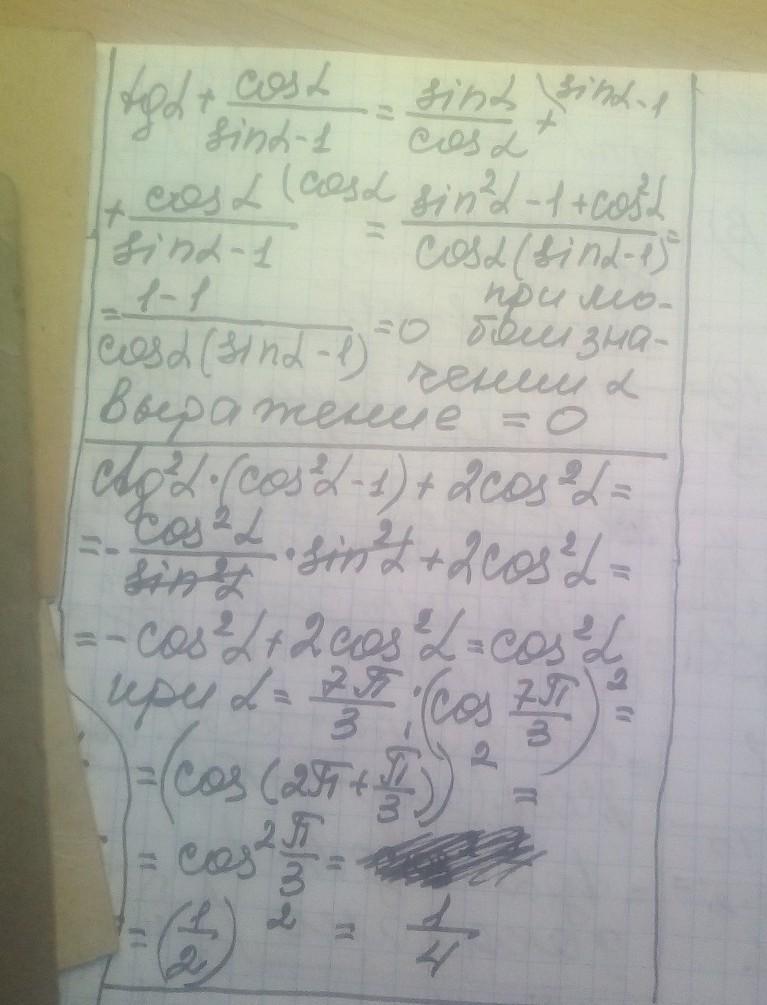 tgα + cosα/(sinα-1) = sinα/cosα + \sinα-1
+ cosα/(sinα-1) (cosα = (sin²α-1+cos²α)/(cosα(sinα-1)) =
= (1-1)/(cosα(sinα-1)) = 0 при лю-
бом зна-
чении α
Выражение = 0
ctg²α·(cos²α-1) + 2cos²α =
= - cos²α/sin²α · sin²α + 2cos²α =
= -cos²α + 2cos²α = cos²α
при α = 7π/3 ; (cos 7π/3)² =
= (cos (2π + π/3))² =
= cos² π/3 =
= (1/2)² = 1/4